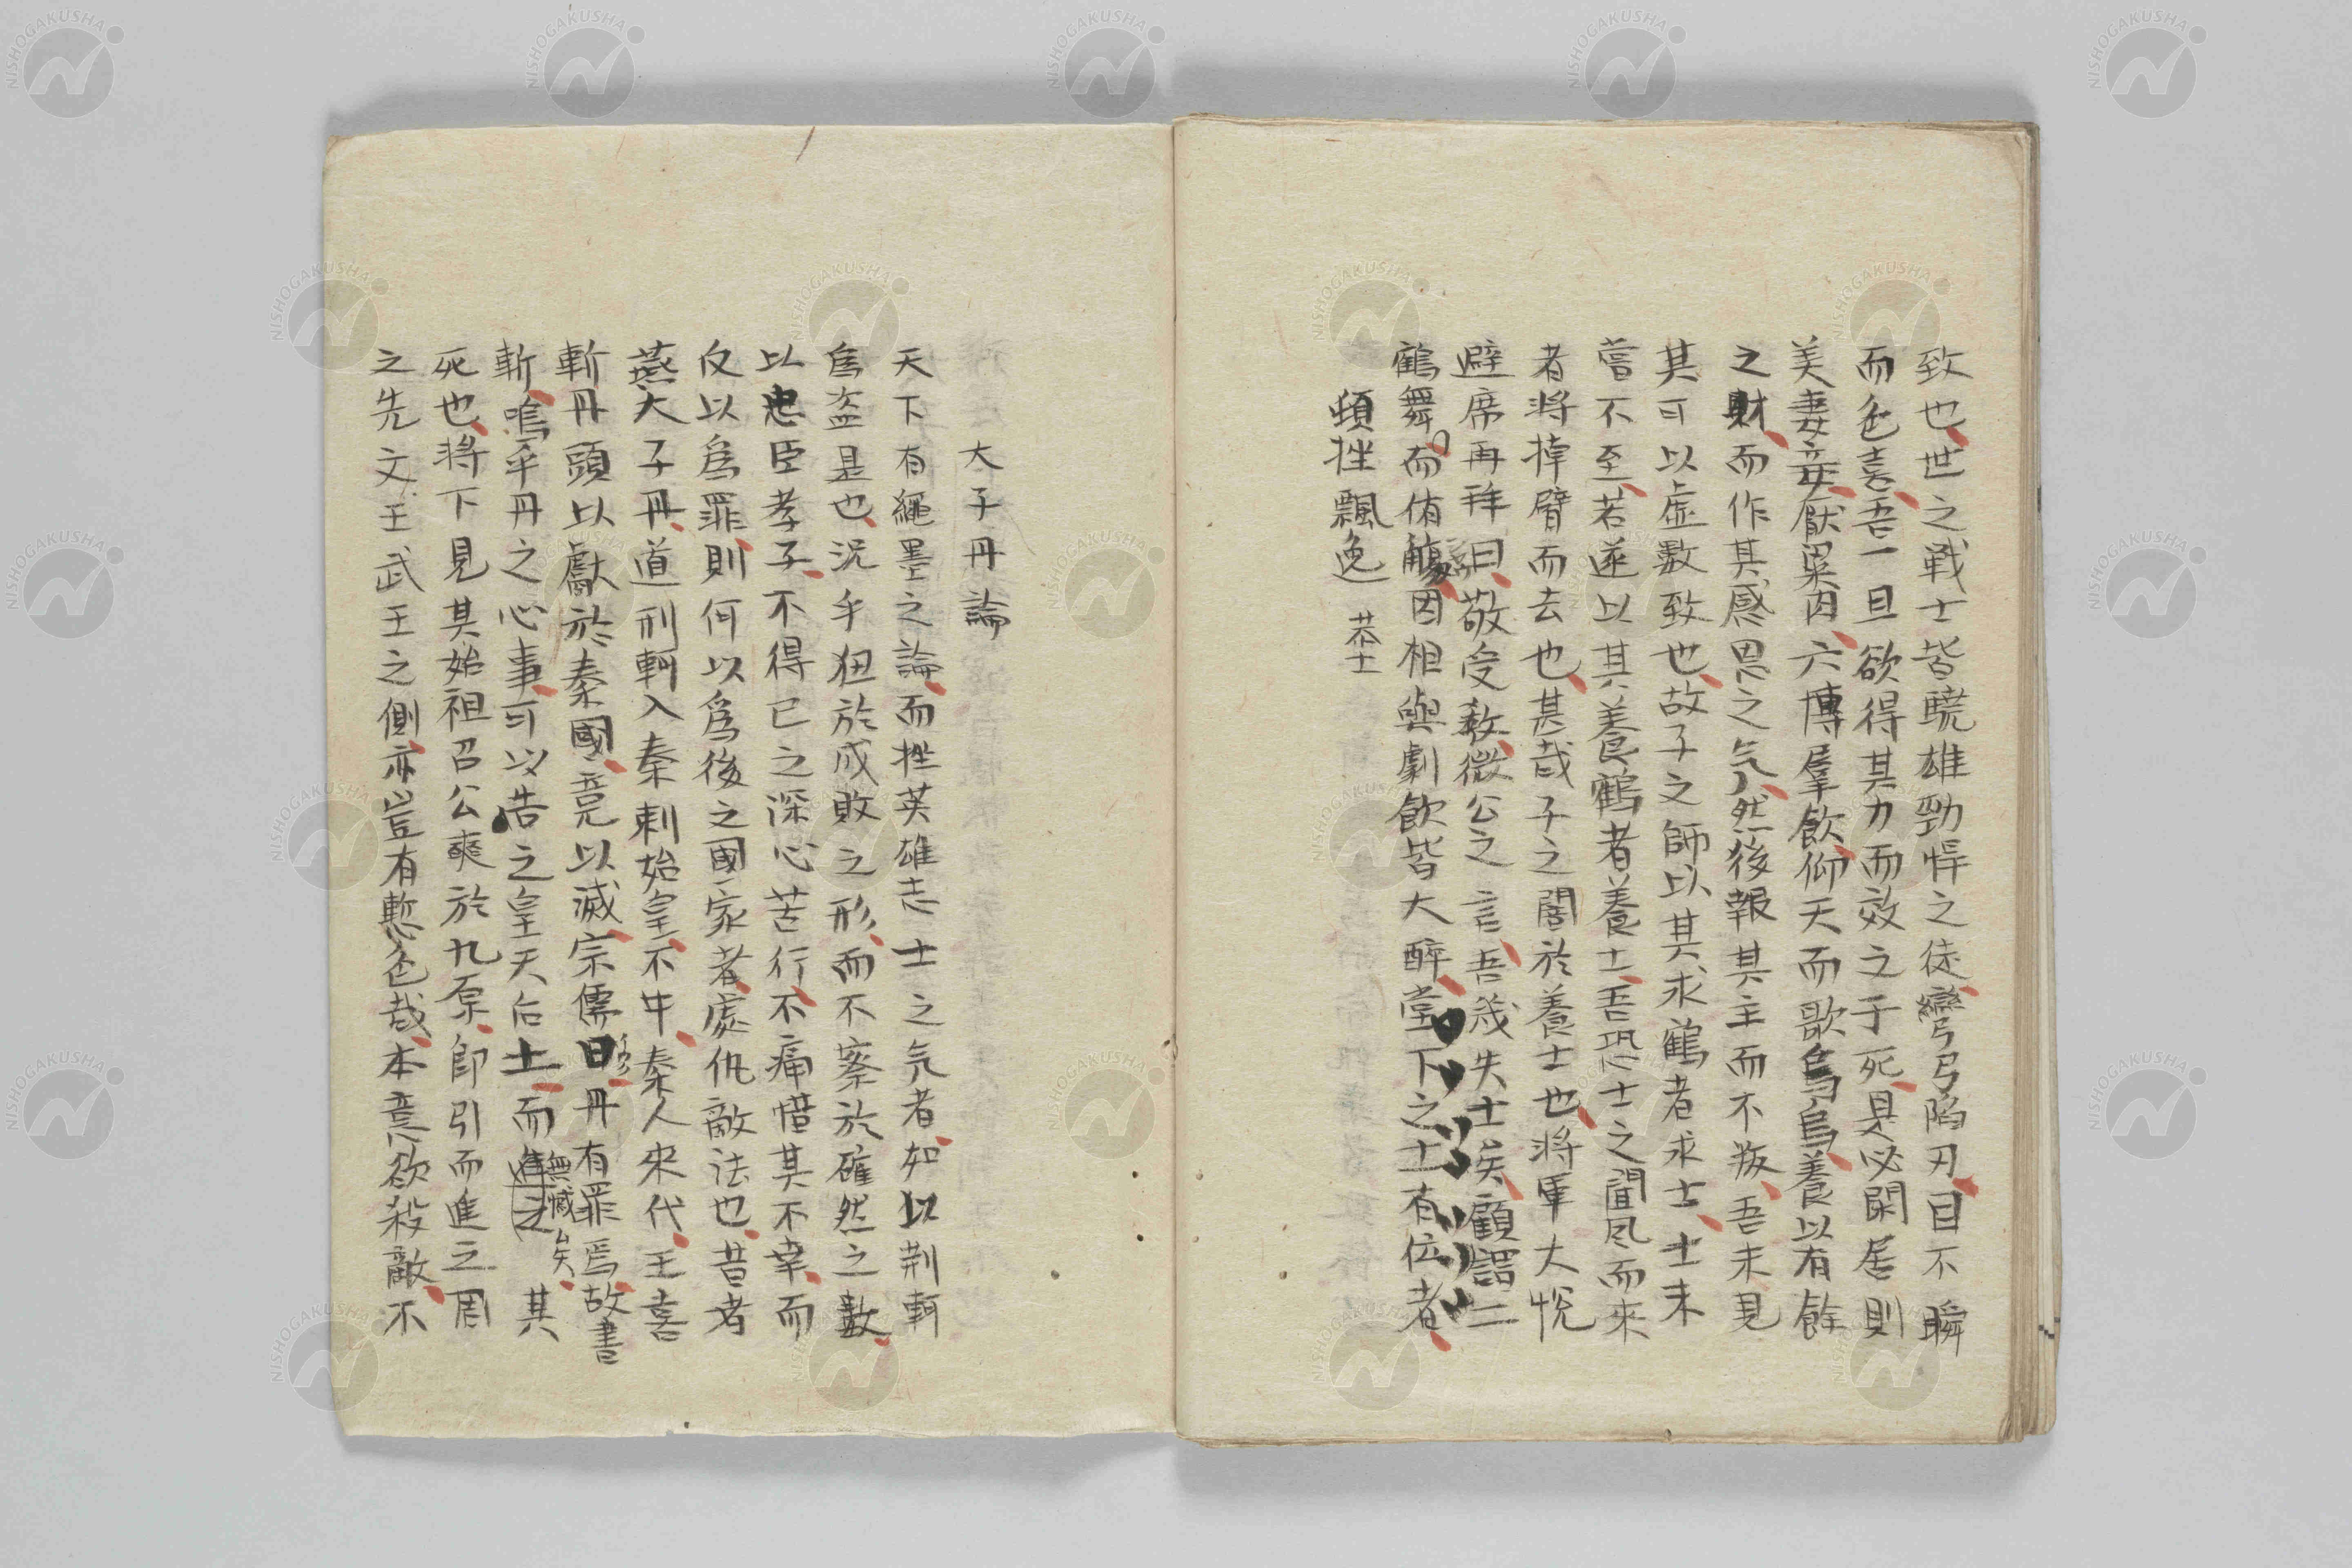 致也世之戰士皆驍雄勁悍之徒彎弓陷刃目不瞬
而色喜吾一旦欲得其力而效之于死是必閑居則
美妻妾厭粱肉六博羣飲仰天而歌烏烏養以有餘
之財而作其感恩之气然後報其主而不叛吾未見
其可以虛數致也故子之師以其求鶴者求士士未
嘗不至若遂以其養鶴者養士吾恐士之聞風而來
者將掉臂而去也甚哉子之闇於養士也將軍大悅
避席再拜曰敬受教微公之言吾幾失士矣顧謂二
鶴舞而侑觴因相與劇飲皆大醉堂下之士有位者
頓挫飄逸 恭士
大子丹論
天下有繩墨之論而挫英雄志士之气者如以荆軻
爲盜是也況乎狃於成敗之形而不察於確然之數
以忠臣孝子不得已之深心苦行不痛惜其不幸而
反以爲罪則何以爲後之國家者處仇敵法也昔者
燕大子丹道荆軻入秦刺始皇不中秦人來代王喜
斬丹頭以獻於秦國竟以滅宗儒曰丹有罪焉故書
斬嗚乎丹之心事可以告之皇天后土而無憾矣其
死也將下見其始祖召公奭於九原卽引而進之周
之先文王武王之側亦豈有慙色哉本意欲殺敵不
NISHOGAKUSHA